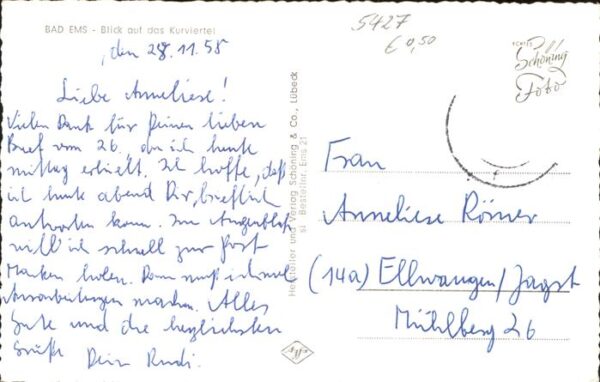 BAD EMS - Blick auf das Kurviertel
, den 28.11.58
Liebe Anneliese!
Vielen Dank für Deinen lieben
Brief vom 26., den ich heute
mittag erhielt. Ich hoffe, daß
ich heute abend Dir brieflich
antworten kann. Im Augenblick
will ich schnell zur Post
Marken holen. Dann muß ich noch
Ausarbeitungen machen. Alles
Gute und die herzlichsten
Grüße Dein Rudi.
Hersteller und Verlag Schöning & Co., Lübeck
si Bestellnr. Ems 21
5427
€ 0,50
ECHTES
Schöning
Foto
Frau
Anneliese Römer
(14a) Ellwangen/Jagst
Mühlberg 26